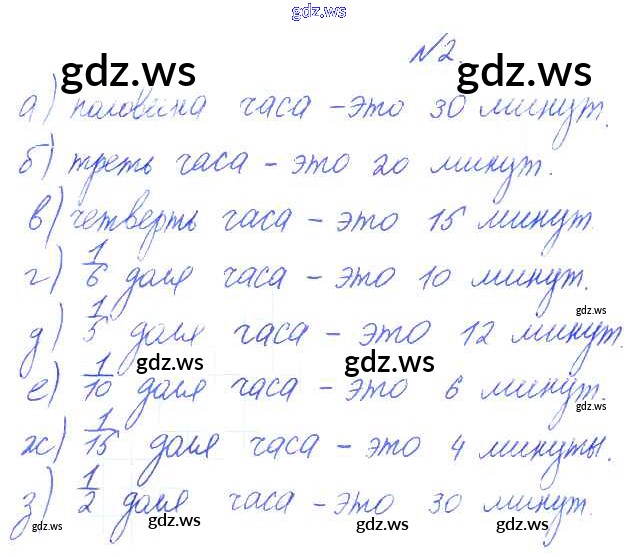 gdz.ws
№2.
gdz.ws gdz.ws
а) половина часа – это 30 минут.
б) треть часа – это 20 минут.
в) четверть часа – это 15 минут.
г) 1/6 доля часа – это 10 минут.
gdz.ws
д) 1/5 доля часа – это 12 минут.
gdz.ws gdz.ws
е) 1/10 доля часа – это 6 минут.
gdz.ws
ж) 1/15 доля часа – это 4 минуты.
з) 1/2 доля часа – это 30 минут.
gdz.ws gdz.ws gdz.ws